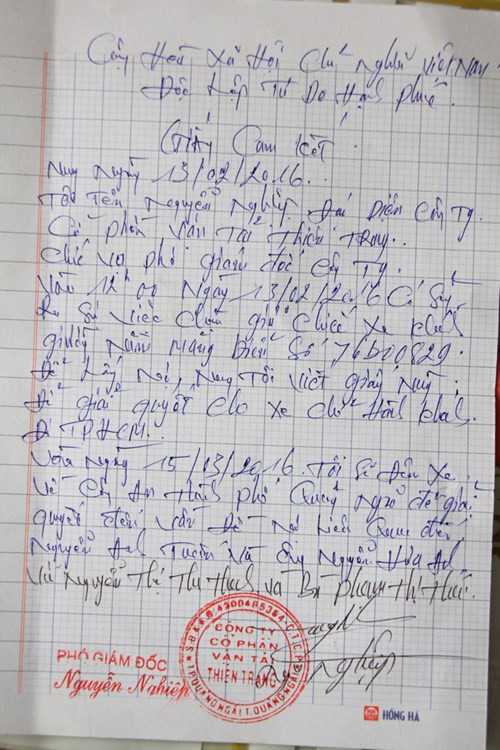 Cộng Hòa Xã Hội Chủ Nghĩa Việt Nam
Độc Lập Tự Do Hạnh Phúc
Giấy Cam kết
Nay Ngày 13/02/2016
Tôi Tên Nguyễn Nghiệp. Đại Diện Công Ty
Cổ phần Vận Tải Thiên Trang
Chức vụ phó giám đốc Công Ty
Vào 12h00 Ngày 13/02/2016 Có
Sự việc giữ Chiếc Xe khách
giường Nằm Mang Biển Số 76B00829
Nay Tôi viết giấy Này
Để giải quyết Cho Xe Chở Hành khách
Đi TPHCM
Vào Ngày 15/03/2016 Tôi Sẽ Đưa Xe
Về Công An Thành phố Quảng Ngãi để giải
quyết đến Vấn Đề Nợ Liên Quan đến
Nguyễn Anh Tuấn Và Ông Nguyễn Hòa
Nguyễn Thị Thu và Bà Phạm Thị
S.Đ.K.K.D:4300485364-C.T.C.P
CÔNG TY
CỔ PHẦN
VẬN TẢI
THIÊN TRANG
TP.QUẢNG NGÃI T.QUẢNG NGÃI
PHÓ GIÁM ĐỐC
Nguyễn Nghiệp
Nghiệp
HỒNG HÀ